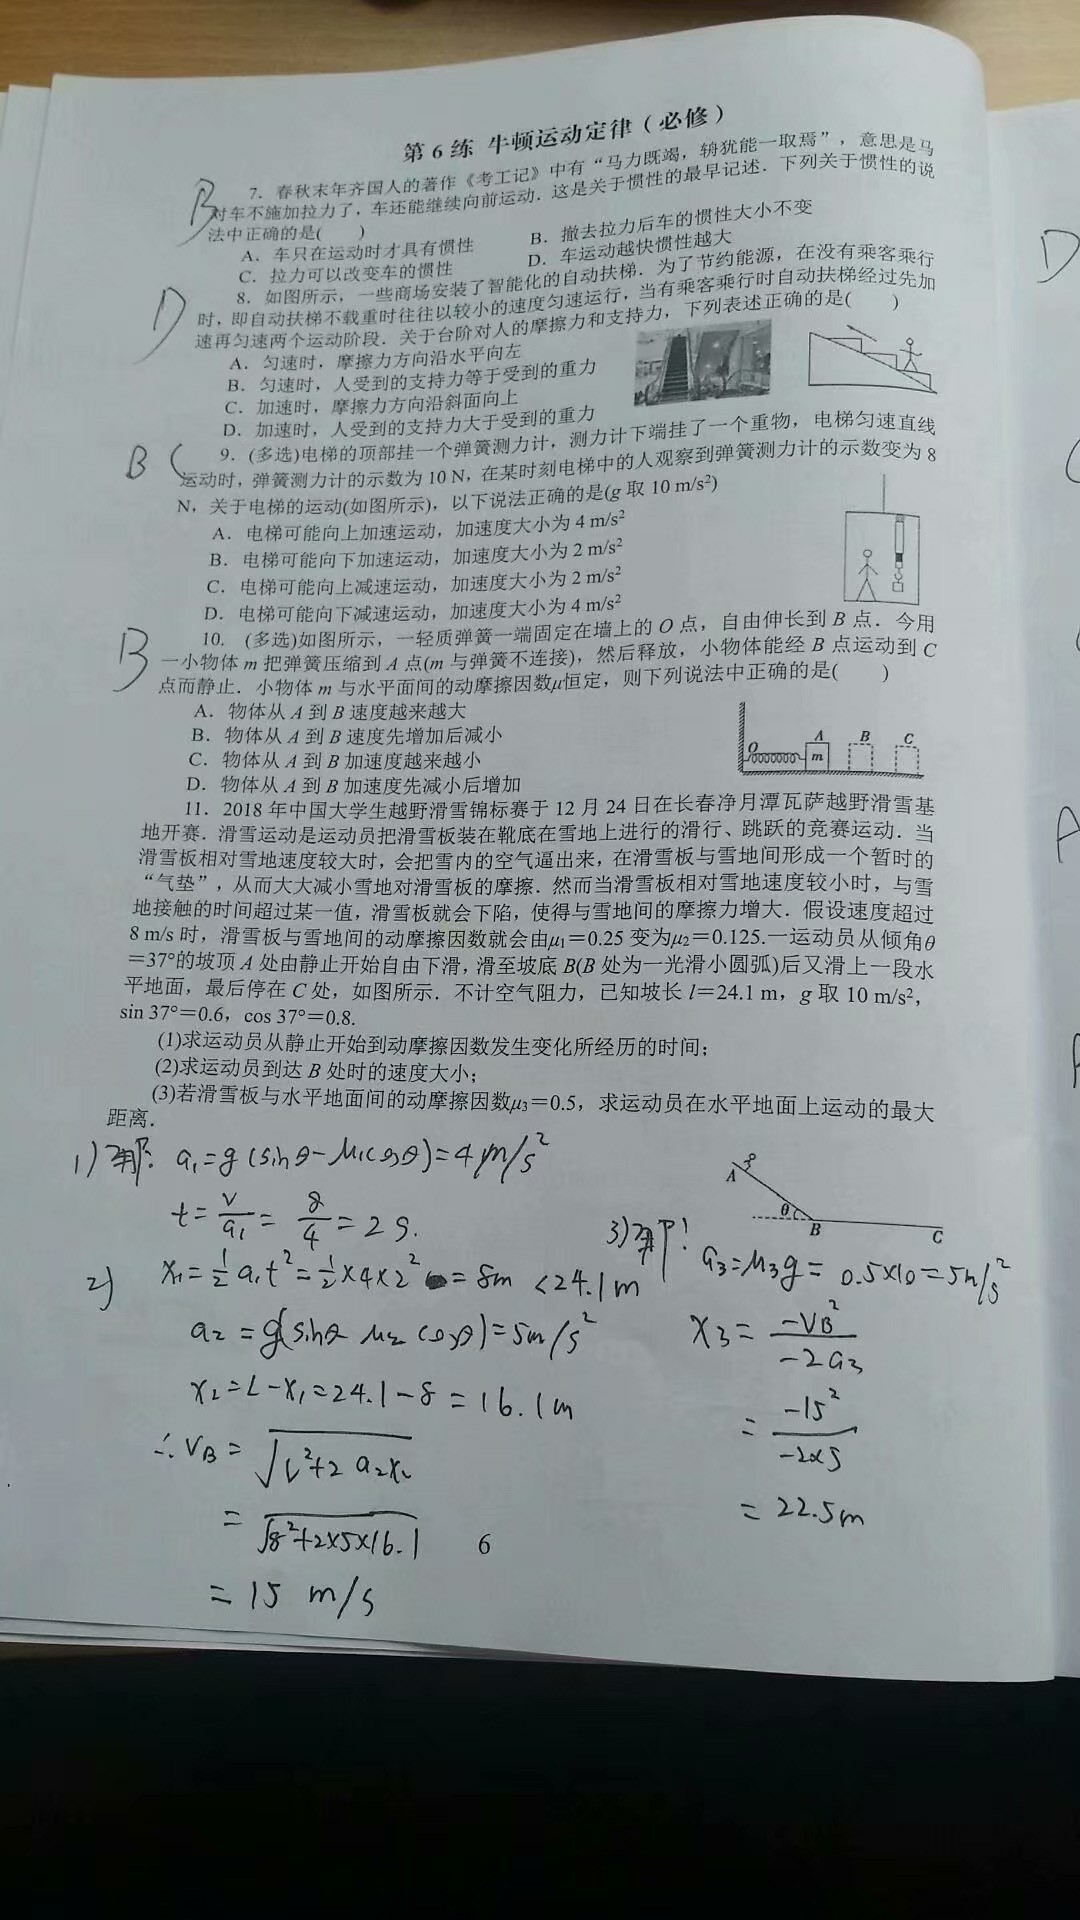 第 6 练  牛顿运动定律（必修）
B
7．春秋末年齐国人的著作《考工记》中有“马力既竭，辀犹能一取焉”，意思是马
对车不施加拉力了，车还能继续向前运动．这是关于惯性的最早记述．下列关于惯性的说
法中正确的是(　　)
A．车只在运动时才具有惯性　　B．撤去拉力后车的惯性大小不变
C．拉力可以改变车的惯性　　D．车运动越快惯性越大
D
8．如图所示，一些商场安装了智能化的自动扶梯．为了节约能源，在没有乘客乘行
时，即自动扶梯不载重时往往以较小的速度匀速运行，当有乘客乘行时自动扶梯经过先加
速再匀速两个运动阶段．关于台阶对人的摩擦力和支持力，下列表述正确的是(　　)
A．匀速时，摩擦力方向沿水平向左
B．匀速时，人受到的支持力等于受到的重力
C．加速时，摩擦力方向沿斜面向上
D．加速时，人受到的支持力大于受到的重力
B C
9．(多选)电梯的顶部挂一个弹簧测力计，测力计下端挂了一个重物，电梯匀速直线
运动时，弹簧测力计的示数为 10 N，在某时刻电梯中的人观察到弹簧测力计的示数变为 8
N，关于电梯的运动(如图所示)，以下说法正确的是(g 取 10 m/s²)
A．电梯可能向上加速运动，加速度大小为 4 m/s²
B．电梯可能向下加速运动，加速度大小为 2 m/s²
C．电梯可能向上减速运动，加速度大小为 2 m/s²
D．电梯可能向下减速运动，加速度大小为 4 m/s²
B
10．(多选)如图所示，一轻质弹簧一端固定在墙上的 O 点，自由伸长到 B 点．今用
一小物体 m 把弹簧压缩到 A 点(m 与弹簧不连接)，然后释放，小物体能经 B 点运动到 C
点而静止．小物体 m 与水平面间的动摩擦因数μ恒定，则下列说法中正确的是(　　)
A．物体从 A 到 B 速度越来越大
B．物体从 A 到 B 速度先增加后减小
C．物体从 A 到 B 加速度越来越小
D．物体从 A 到 B 加速度先减小后增加
O A m B C
11．2018 年中国大学生越野滑雪锦标赛于 12 月 24 日在长春净月潭瓦萨越野滑雪基
地开赛．滑雪运动是运动员把滑雪板装在靴底在雪地上进行的滑行、跳跃的竞赛运动．当
滑雪板相对雪地速度较大时，会把雪内的空气逼出来，在滑雪板与雪地间形成一个暂时的
“气垫”，从而大大减小雪地对滑雪板的摩擦．然而当滑雪板相对雪地速度较小时，与雪
地接触的时间超过某一值，滑雪板就会下陷，使得与雪地间的摩擦力增大．假设速度超过
8 m/s 时，滑雪板与雪地间的动摩擦因数就会由μ₁＝0.25 变为μ₂＝0.125.一运动员从倾角θ
＝37°的坡顶 A 处由静止开始自由下滑，滑至坡底 B(B 处为一光滑小圆弧)后又滑上一段水
平地面，最后停在 C 处，如图所示．不计空气阻力，已知坡长 l＝24.1 m，g 取 10 m/s²，
sin 37°＝0.6，cos 37°＝0.8.
(1)求运动员从静止开始到动摩擦因数发生变化所经历的时间；
(2)求运动员到达 B 处时的速度大小；
(3)若滑雪板与水平地面间的动摩擦因数μ₃＝0.5，求运动员在水平地面上运动的最大
距离．
A θ B C
1) 解: a₁=g(sinθ-μ₁cosθ)=4m/s²
t=v/a₁=8/4=2s.
2) x₁=½a₁t²=½×4×2²=8m <24.1m
a₂=g(sinθ μ₂cosθ)=5m/s²
x₂=L-x₁=24.1-8=16.1m
∴VB=√(v²+2a₂x₂)
=√(8²+2×5×16.1)
=15 m/s
3) 解: a₃=μ₃g=0.5×10=5m/s²
x₃=-VB²/-2a₃
=-15²/-2×5
=22.5m
6
D